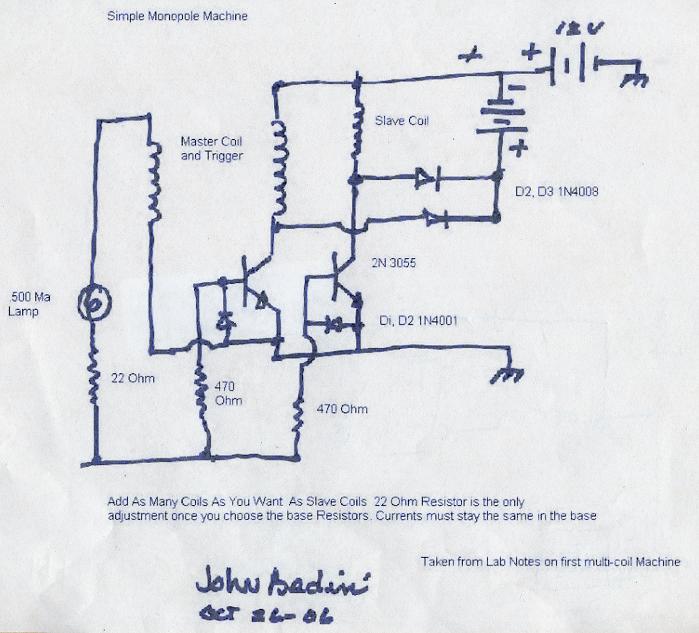 Simple Monopole Machine
12V
+ +
-
Slave Coil
Master Coil
and Trigger
+
D2, D3 1N4008
2N 3055
.500 Ma
Lamp
Di, D2 1N4001
22 Ohm
470
Ohm
470 Ohm
Add As Many Coils As You Want As Slave Coils 22 Ohm Resistor is the only
adjustment once you choose the base Resistors. Currents must stay the same in the base
Taken from Lab Notes on first multi-coil Machine
John Bedini
OCT 26-06